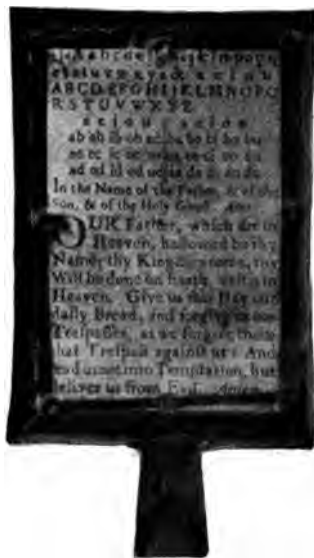 a b c d e f g h i j k l m n o p q
r s t u v w x y z & a e i o u
ABCDEFGHIJKLMNOPQ
RSTUVWXYZ
a e i o u a e i o u
ab eb ib ob ub ba be bi bo bu
ac ec ic oc uc ca ce ci co cu
ad ed id od ud da de di do du
In the Name of the Father, & of the
Son, & of the Holy Ghost. Amen.
OUR Father, which art in
Heaven, hallowed be thy
Name; thy Kingdom come, thy
Will be done on Earth, as it is in
Heaven. Give us this Day our
daily Bread; and forgive us our
Trespasses, as we forgive them
that Trespass against us: And
lead us not into Temptation, but
deliver us from Evil. Amen.